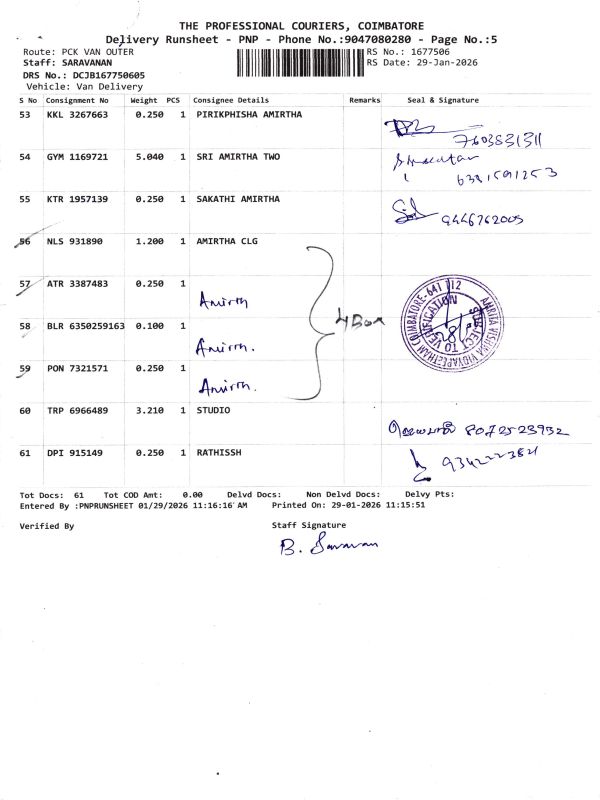 THE PROFESSIONAL COURIERS, COIMBATORE
Delivery Runsheet - PNP - Phone No.:9047080280 - Page No.:5
Route: PCK VAN OUTER
RS No.: 1677506
Staff: SARAVANAN
RS Date: 29-Jan-2026
DRS No.: DCJB167750605
Vehicle: Van Delivery
S No Consignment No Weight PCS Consignee Details Remarks Seal & Signature
53 KKL 3267663 0.250 1 PIRIKPHISHA AMIRTHA
7603831311
54 GYM 1169721 5.040 1 SRI AMIRTHA TWO
6381591253
55 KTR 1957139 0.250 1 SAKATHI AMIRTHA
9446762005
56 NLS 931890 1.200 1 AMIRTHA CLG
57 ATR 3387483 0.250 1
Amirth
4 Box
58 BLR 6350259163 0.100 1
Amirth.
59 PON 7321571 0.250 1
Amirth.
AMRITA VISHWA VIDYAPEETHAM COIMBATORE-641 112
SUBJECT TO VERIFICATION
60 TRP 6966489 3.210 1 STUDIO
8072523932
61 DPI 915149 0.250 1 RATHISSH
Tot Docs: 61 Tot COD Amt: 0.00 Delvd Docs: Non Delvd Docs: Delvy Pts:
Entered By :PNPRUNSHEET 01/29/2026 11:16:16 AM Printed On: 29-01-2026 11:15:51
Verified By
Staff Signature
B. Saravan